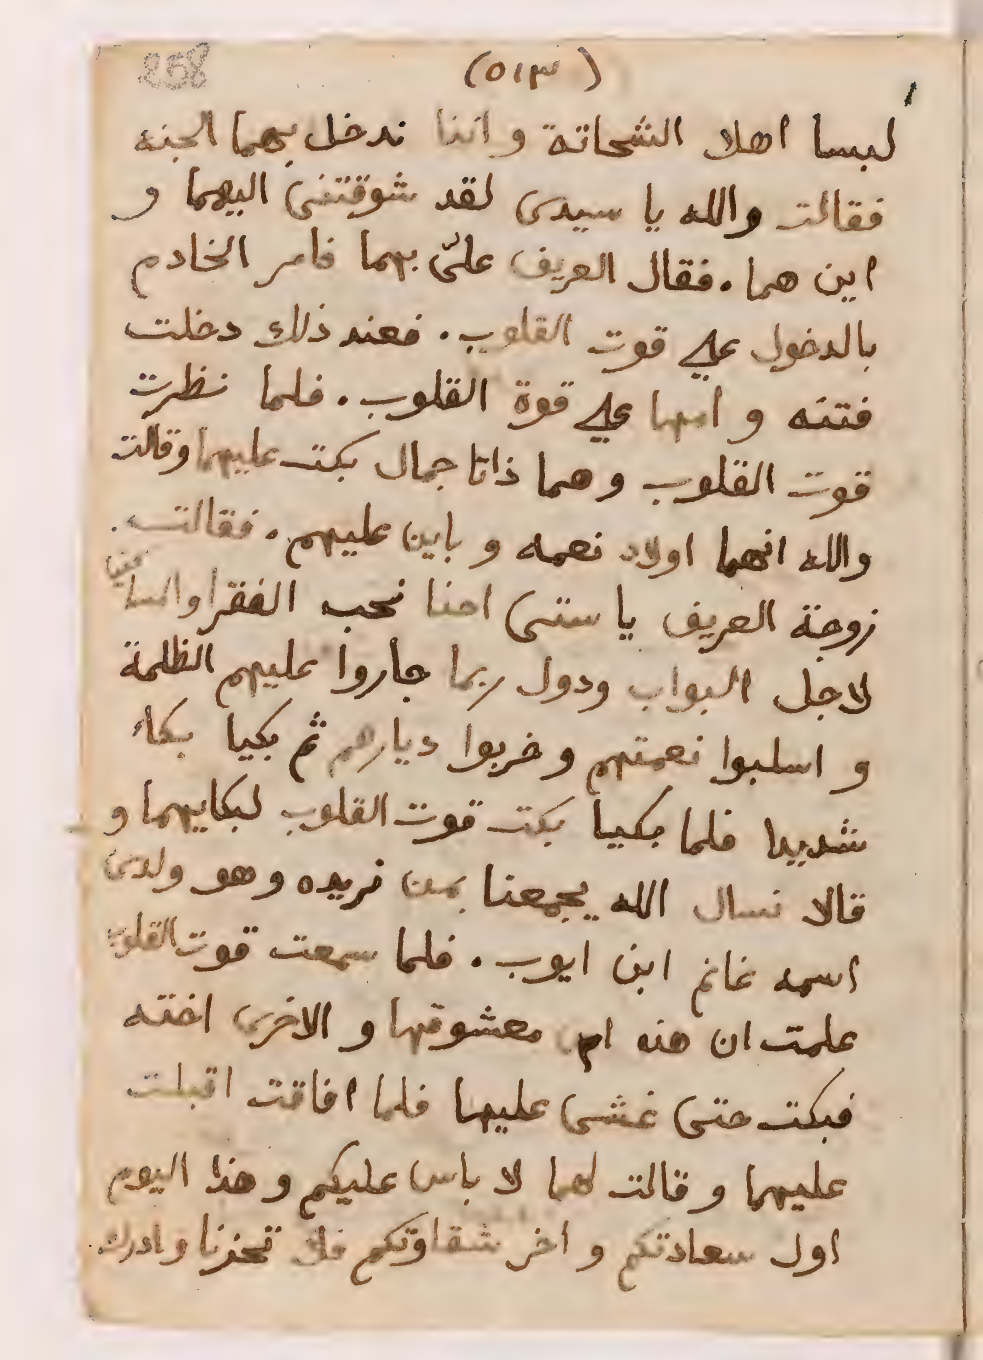 258
(٥١٣)
ليسا اهلا الشحاتة و اننا ندخل بهما الجنه
فقالت والله يا سيدى لقد شوقتنى اليهما و
اين هما . فقال العريف علىّ بهما فامر الخادم
بالدخول على قوت القلوب . فعند ذلك دخلت
فتنه و امها على قوة القلوب . فلما نظرت
قوت القلوب و هما ذاتا جمال بكت عليهما وقالت
والله انهما اولاد نعمه و باين عليهم . فقالت
زوجة العريف يا ستى احنا نحب الفقرا والمساكين
لاجل الثواب ودول ربما جاروا عليهم الظلمة
و اسلبوا نعمتهم و خربوا ديارهم ثم بكيا بكاء
شديدا فلما بكيا بكت قوت القلوب لبكايهما و
قالا نسال الله يجمعنا بمن نريده وهو ولدى
اسمه غانم ابن ايوب . فلما سمعت قوت القلوب
علمت ان هذه ام معشوقها و الاخرى اخته
فبكت حتى غشى عليها فلما افاقت اقبلت
عليهما و قالت لهما لا باس عليكم و هذا اليوم
اول سعادتكم و اخر شقاوتكم فلا تحزنا وادرك